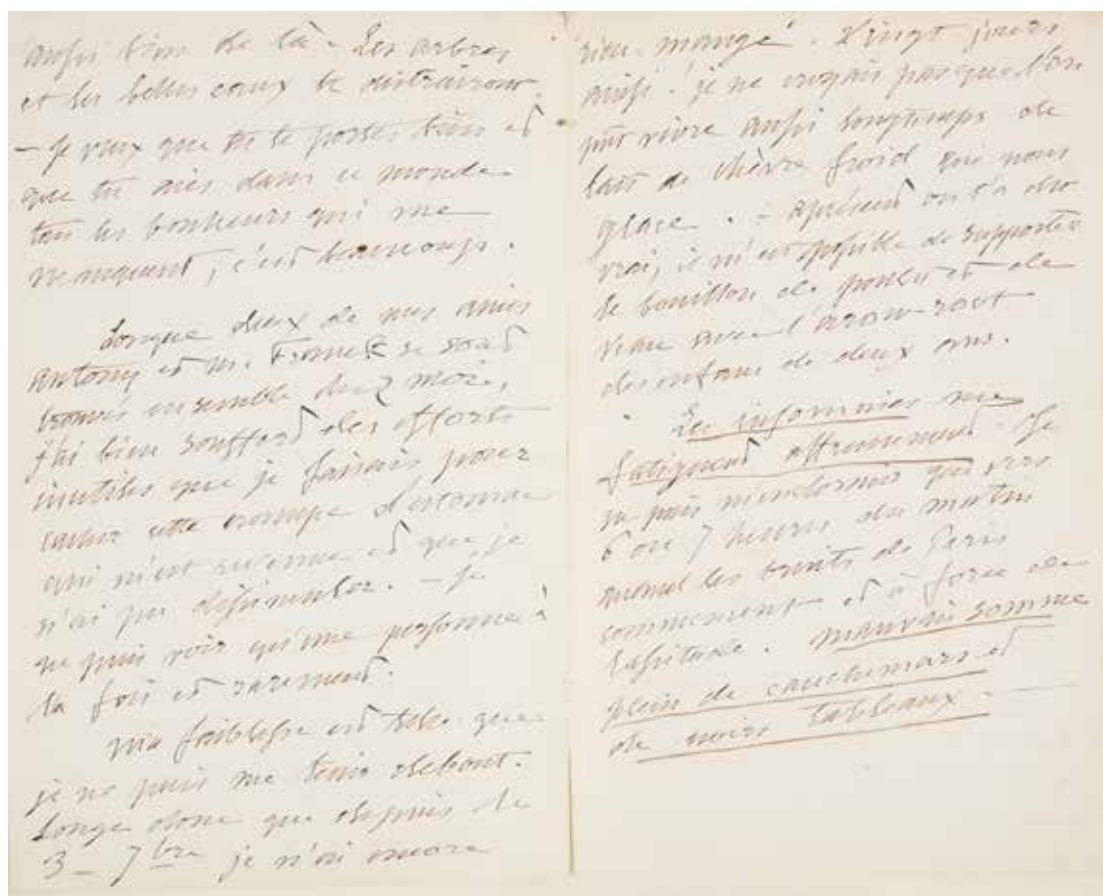 aussi bien de là. Les arbres
et les belles eaux te distrairont.
– Je veux que tu te portes bien et
que tu aies dans ce monde
tous les bonheurs qui me
manquent, c'est beaucoup.
Lorsque deux de mes amis
Antony et M. se sont
trouvés ensemble chez moi,
j'ai bien souffert des efforts
inutiles que je faisais pour
cacher cette crampe d'estomac
qui m'est survenue et que je
n'ai pu dissimuler. – Je
ne puis voir qu'une personne à
la fois et rarement.
Ma faiblesse est telle que
je ne puis me tenir debout.
Songe donc que depuis le
3 – 7bre je n'ai encore
rien mangé. Vingt jours
ainsi ! je ne croyais pas que l'on
pût vivre aussi longtemps de
lait de chèvre froid qui nous
glace. – Apresent on s'a dit
vrai, il m'est possible de supporter
le bouillon de poulet et de
veau avec l'arow-root
des enfans de deux ans.
Les insomnies me
fatiguent affreusement. Je
ne puis m'endormir que vers
6 ou 7 heures du matin
quand les bruits de Paris
commencent et à force de
lassitude. mauvais somme
plein de cauchemars et
de noirs tableaux. –